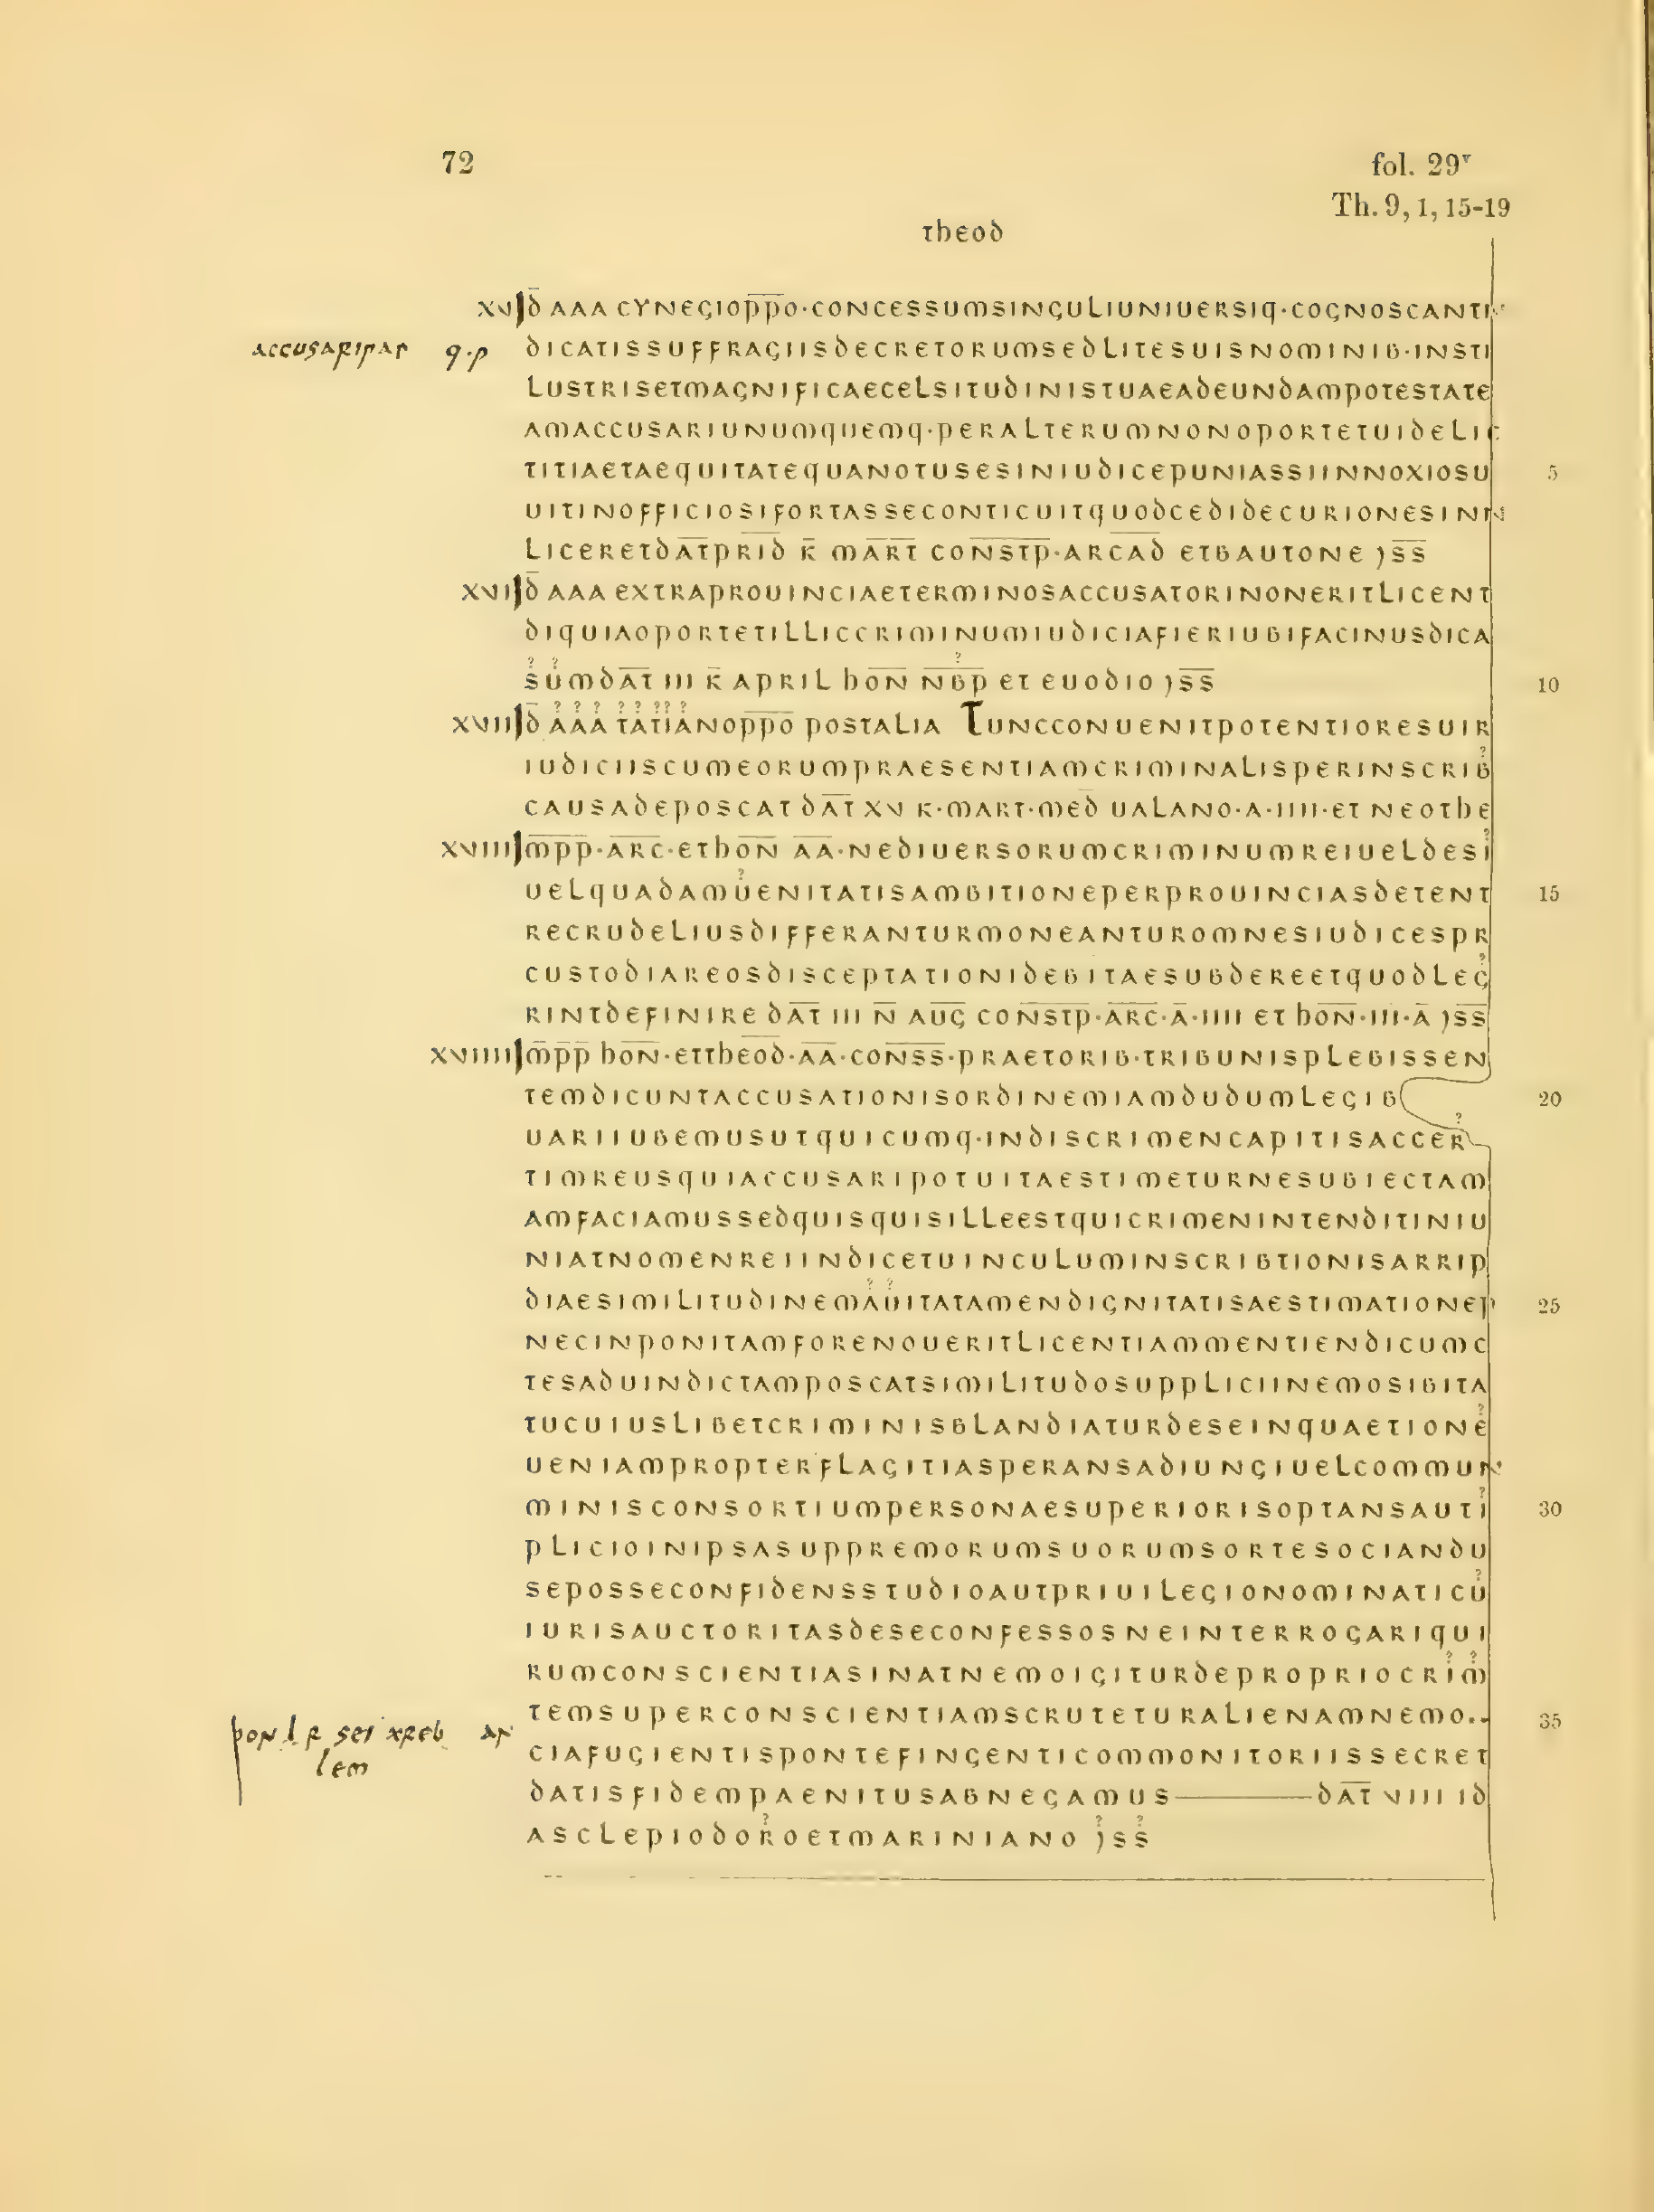 72
fol. 29ʳ
Th. 9, 1, 15-19
τheod
XVI D̄ AAA CYNEGIOP̅P̅O·CONCESSUMSINGULIUNIUERSIQ·COGNOSCANTI
accusaripar q·p DICATISSUFFRAGIISDECRETORUMSEDLITESUISNOMINIB·INSTI
LUSTRISETMAGNIFICAECELSITUDINISTUAEADEUNDAMPOTESTATE
AMACCUSARIUNUMQUEMQ·PERALTERUMNONOPORTETUIDELIC
TITIAETAEQUITATEQUANOTUSESINIUDICEPUNIASSIINNOXIOSU 5
UITINOFFICIOSIFORTASSECONTICUITQUODCEDIDECURIONESINN
LICERETDA̅T̅PRI̅D̅ K̄ MA̅R̅T̅ CON̅S̅T̅P̅·ARC̅A̅D̅ ETBAUTONE )S̅S̅
XVII D̄ AAA EXTRAPROUINCIAETERMINOSACCUSATORINONERITLICENT
DIQUIAOPORTETILLICCRIMINUMIUDICIAFIERIUBIFACINUSDICA
SUMDA̅T̅ III K̄ APRIL HO̅N̅ N̅B̅P̅ ET EUODIO )S̅S̅ 10
XVIII D̄ AAA TATIANOP̅P̅O̅ POSTALIA TUNCCONUENITPOTENTIORESUIR
IUDICIISCUMEORUMPRAESENTIAMCRIMINALISPERINSCRIB
CAUSADEPOSCAT DA̅T̅ XV K·MART·MED̄ UALANO·A·IIII·ET NEOTHE
XVIIII M̅P̅P̅·A̅R̅C̅·ETHO̅N̅ A̅A̅·NEDIUERSORUMCRIMINUMREIUELDESI
UELQUADAMUENITATISAMBITIONEPERPROUINCIASDETENT 15
RECRUDELIUSDIFFERANTURMONEANTUROMNESIUDICESPR
CUSTODIAREOSDISCEPTATIONIDEBITAESUBDEREETQUODLEG
RINTDEFINIRE DA̅T̅ III N̄ AU̅G̅ CON̅S̅T̅P̅·A̅R̅C̅·Ā·IIII ET HO̅N̅·III·Ā )S̅S̅
XVIIIII M̅P̅P̅ HO̅N̅·ETTHE̅O̅D̅·A̅A̅·CON̅S̅S̅·PRAETORIB·TRIBUNISPLEBISSEN
TEMDICUNTACCUSATIONISORDINEMIAMDUDUMLEGIB 20
UARIIUBEMUSUTQUICUMQ·INDISCRIMENCAPITISACCER
TIMREUSQUIACCUSARIPOTUITAESTIMETURNESUBIECTAM
AMFACIAMUSSEDQUISQUISILLEESTQUICRIMENINTENDITINIU
NIATNOMENREIINDICETUINCULUMINSCRIBTIONISARRIP
DIAESIMILITUDINEMAUITATAMENDIGNITATISAESTIMATIONEP 25
NECINPONITAMFORENOUERITLICENTIAMMENTIENDICUMC
TESADUINDICTAMPOSCATSIMILITUDOSUPPLICIINEMOSIBITA
TUCUIUSLIBETCRIMINISBLANDIATURDESEINQUAETIONE
UENIAMPROPTERFLAGITIASPERANSADIUNGIUELCOMMUN
MINISCONSORTIUMPERSONAESUPERIORISOPTANSAUTI 30
PLICIOINIPSASUPPREMORUMSUORUMSORTESOCIANDU
SEPOSSECONFIDENSSTUDIOAUTPRIUILEGIONOMINATICU
IURISAUCTORITASDESECONFESSOSNEINTERROGARIQUI
RUMCONSCIENTIASINATNEMOIGITURDEPROPRIOCRIM
TEMSUPERCONSCIENTIAMSCRUTETURALIENAMNEMO.. 35
CIAFUGIENTISPONTEFINGENTICOMMONITORIISSECRET
DATISFIDEMPAENITUSABNEGAMUS————DA̅T̅ VIIII ID
ASCLEPIODOROETMARINIANO )SS